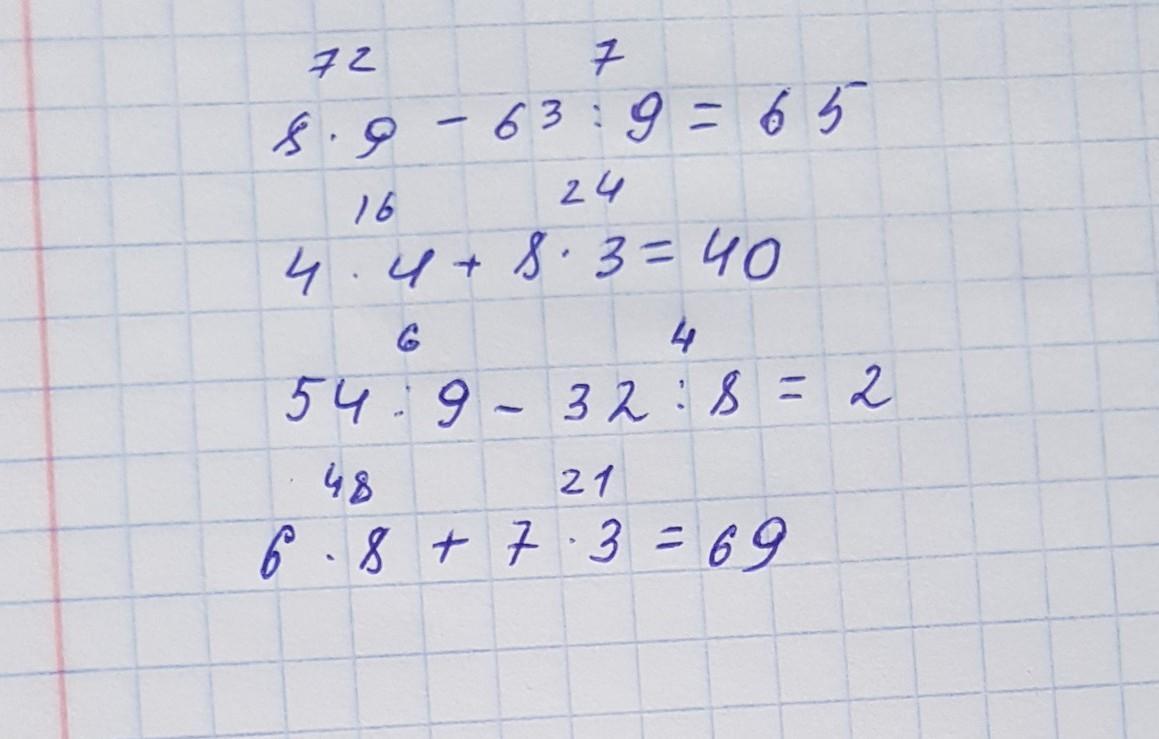 72 7
8 · 9 - 63 : 9 = 65
16 24
4 · 4 + 8 · 3 = 40
6 4
54 : 9 - 32 : 8 = 2
48 21
6 · 8 + 7 · 3 = 69